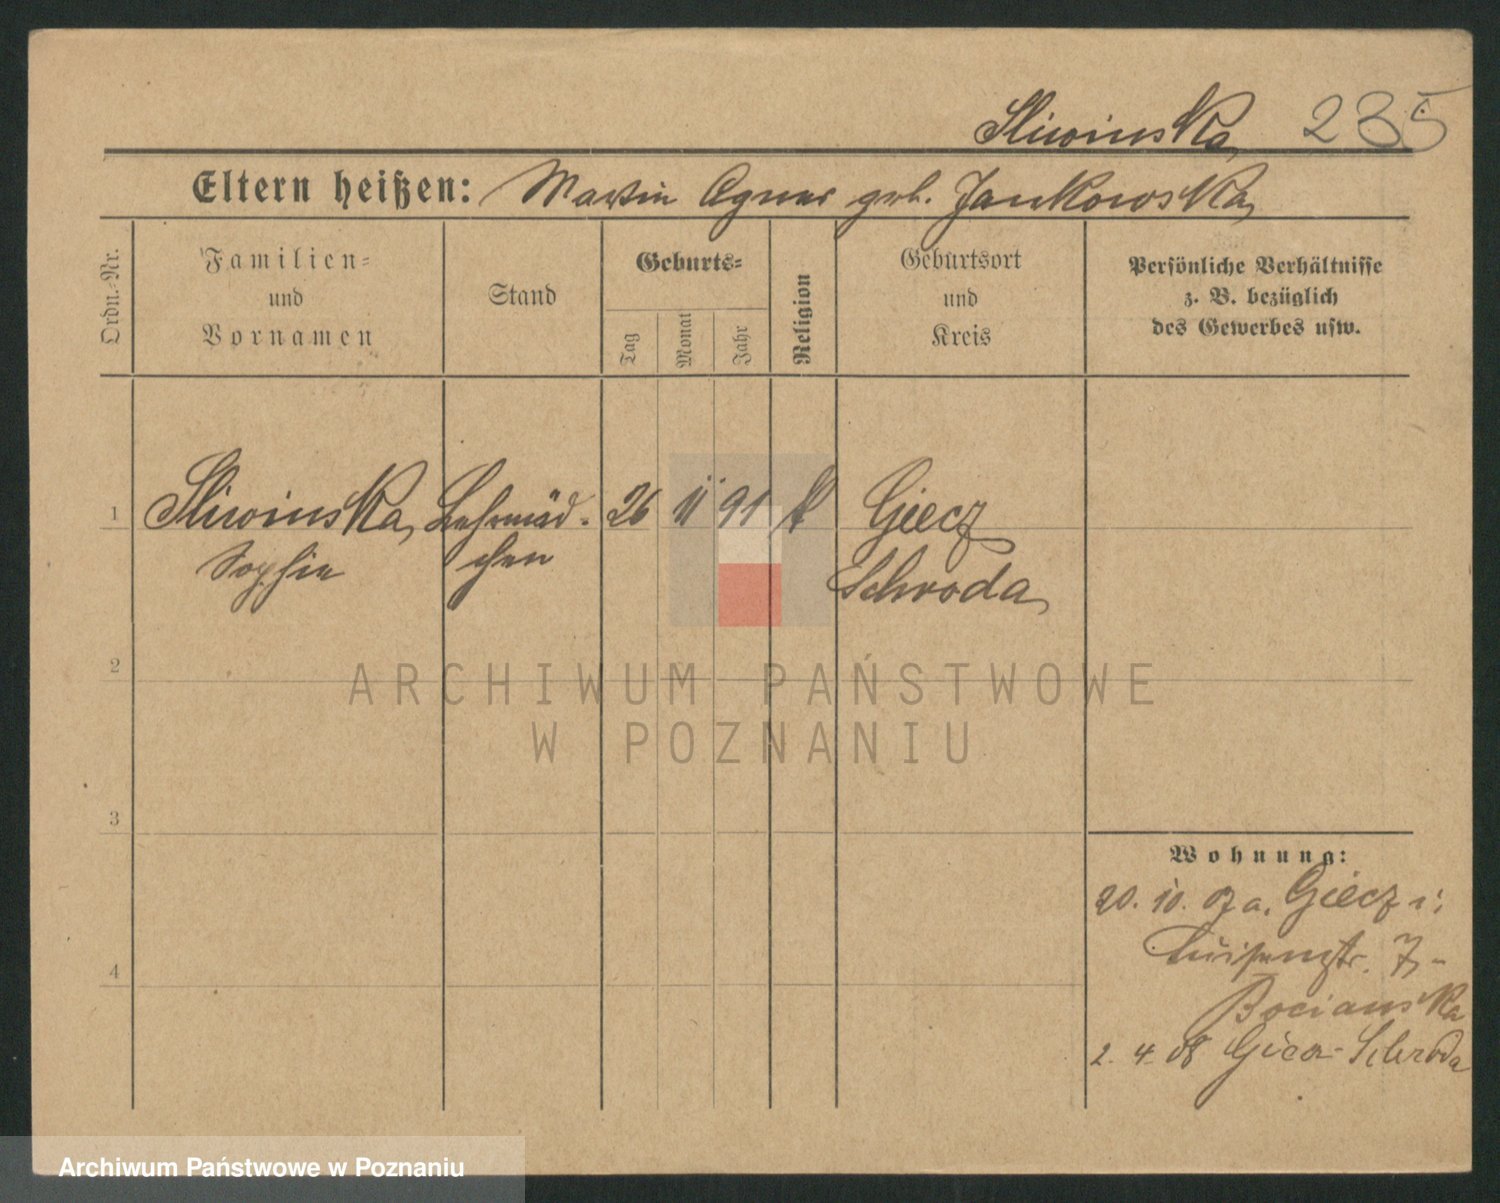 Sliwinska 235
Eltern heißen: Martin Agnes geb. Jankowska
Ordn.-Nr.
Familien-
und
Vornamen
Stand
Geburts-
Tag
Monat
Jahr
Religion
Geburtsort
und
Kreis
Persönliche Verhältnisse
z. B. bezüglich
des Gewerbes usw.
1 Sliwinska Lehrmäd- 26 11 91 k Giecz
Sophie chen Schroda
2
ARCHIWUM PAŃSTWOWE
W POZNANIU
3
Wohnung:
20. 10. 07 a. Giecz i:
Luisenstr. 7-
Bocianska
4
2. 4. 08 Giecz-Schroda
Archiwum Państwowe w Poznaniu